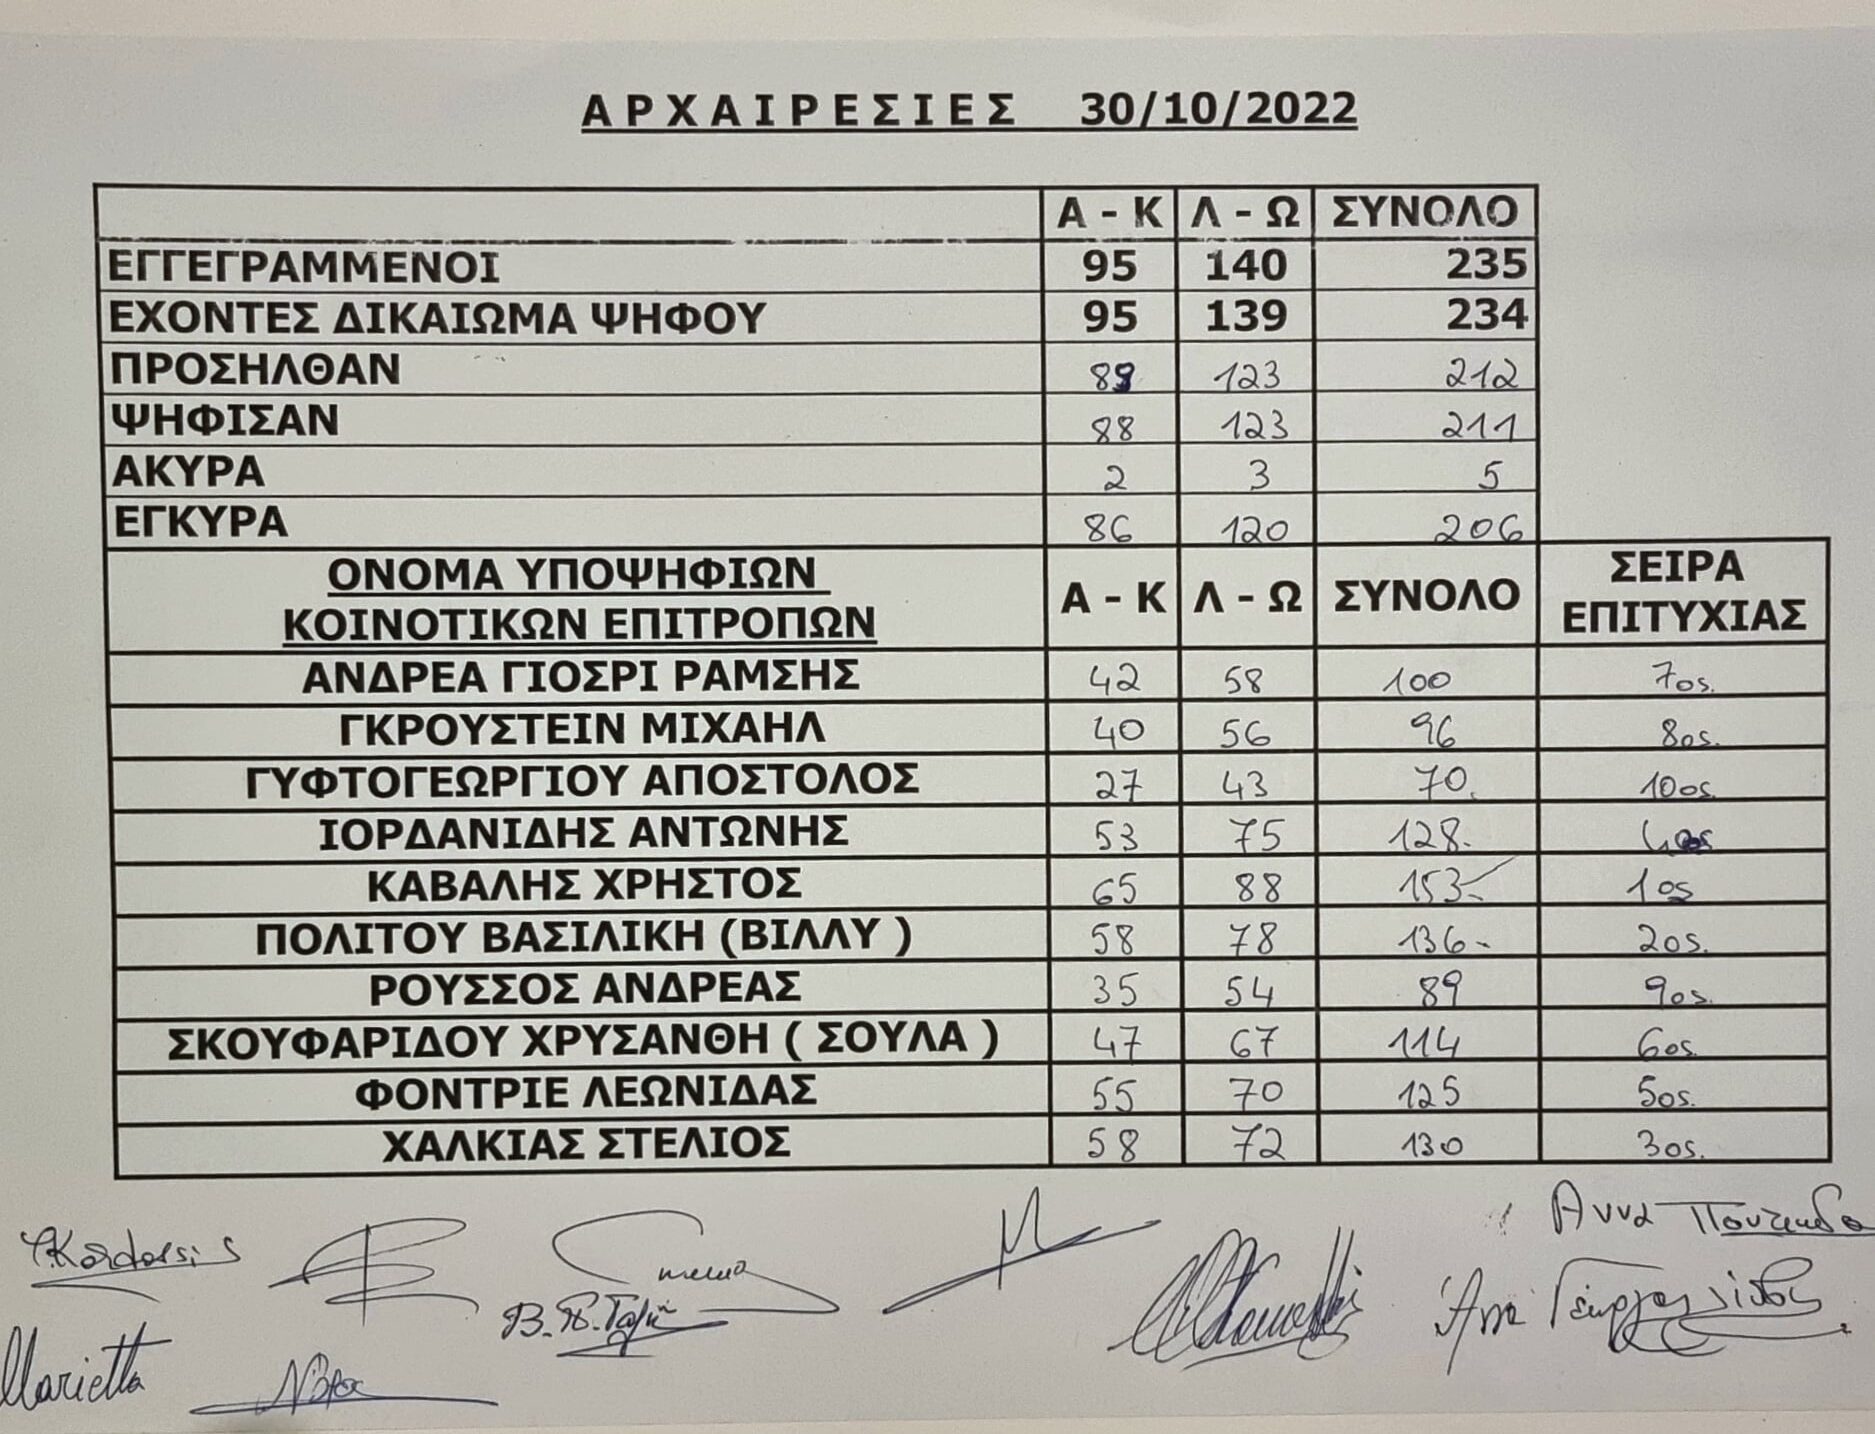 ΑΡΧΑΙΡΕΣΙΕΣ 30/10/2022
Α - Κ Λ - Ω ΣΥΝΟΛΟ
ΕΓΓΕΓΡΑΜΜΕΝΟΙ 95 140 235
ΕΧΟΝΤΕΣ ΔΙΚΑΙΩΜΑ ΨΗΦΟΥ 95 139 234
ΠΡΟΣΗΛΘΑΝ 89 123 212
ΨΗΦΙΣΑΝ 88 123 211
ΑΚΥΡΑ 2 3 5
ΕΓΚΥΡΑ 86 120 206
ΟΝΟΜΑ ΥΠΟΨΗΦΙΩΝ
ΚΟΙΝΟΤΙΚΩΝ ΕΠΙΤΡΟΠΩΝ
Α - Κ Λ - Ω ΣΥΝΟΛΟ
ΣΕΙΡΑ
ΕΠΙΤΥΧΙΑΣ
ΑΝΔΡΕΑ ΓΙΟΣΡΙ ΡΑΜΣΗΣ 42 58 100 7ος.
ΓΚΡΟΥΣΤΕΙΝ ΜΙΧΑΗΛ 40 56 96 8ος.
ΓΥΦΤΟΓΕΩΡΓΙΟΥ ΑΠΟΣΤΟΛΟΣ 27 43 70. 10ος.
ΙΟΡΔΑΝΙΔΗΣ ΑΝΤΩΝΗΣ 53 75 128- 4ος
ΚΑΒΑΛΗΣ ΧΡΗΣΤΟΣ 65 88 153- 1ος
ΠΟΛΙΤΟΥ ΒΑΣΙΛΙΚΗ (ΒΙΛΛΥ ) 58 78 136- 2ος.
ΡΟΥΣΣΟΣ ΑΝΔΡΕΑΣ 35 54 89 9ος.
ΣΚΟΥΦΑΡΙΔΟΥ ΧΡΥΣΑΝΘΗ ( ΣΟΥΛΑ ) 47 67 114 6ος.
ΦΟΝΤΡΙΕ ΛΕΩΝΙΔΑΣ 55 70 125 5ος.
ΧΑΛΚΙΑΣ ΣΤΕΛΙΟΣ 58 72 130 3ος.
Άννα
Marietta